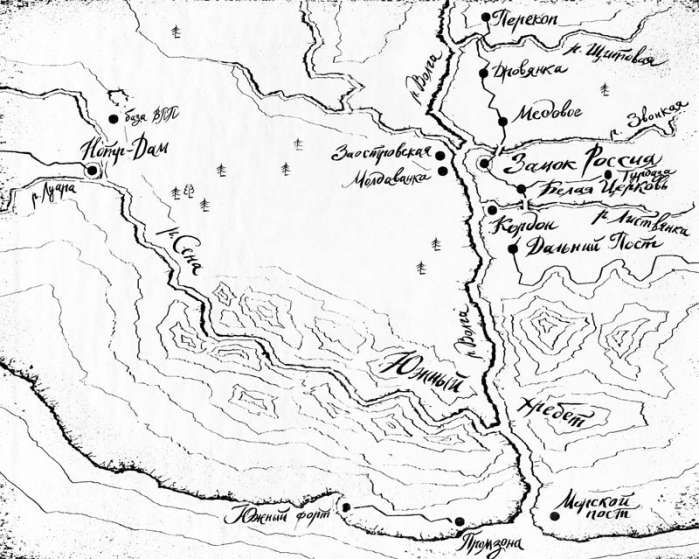 Перекоп
р. Щитовая
р. Волга
Дровянка
Медовое
р. Звонкая
база ВПП
Нотр-Дам
Заостровская
Молдаванка
Замок Россия
Турбаза
Белая Церковь
р. Луара
р. Сена
Кордон
р. Листвянка
Дальний Пост
р. Волга
Южный
Хребет
Южный форт
Промзона
Морской
пост